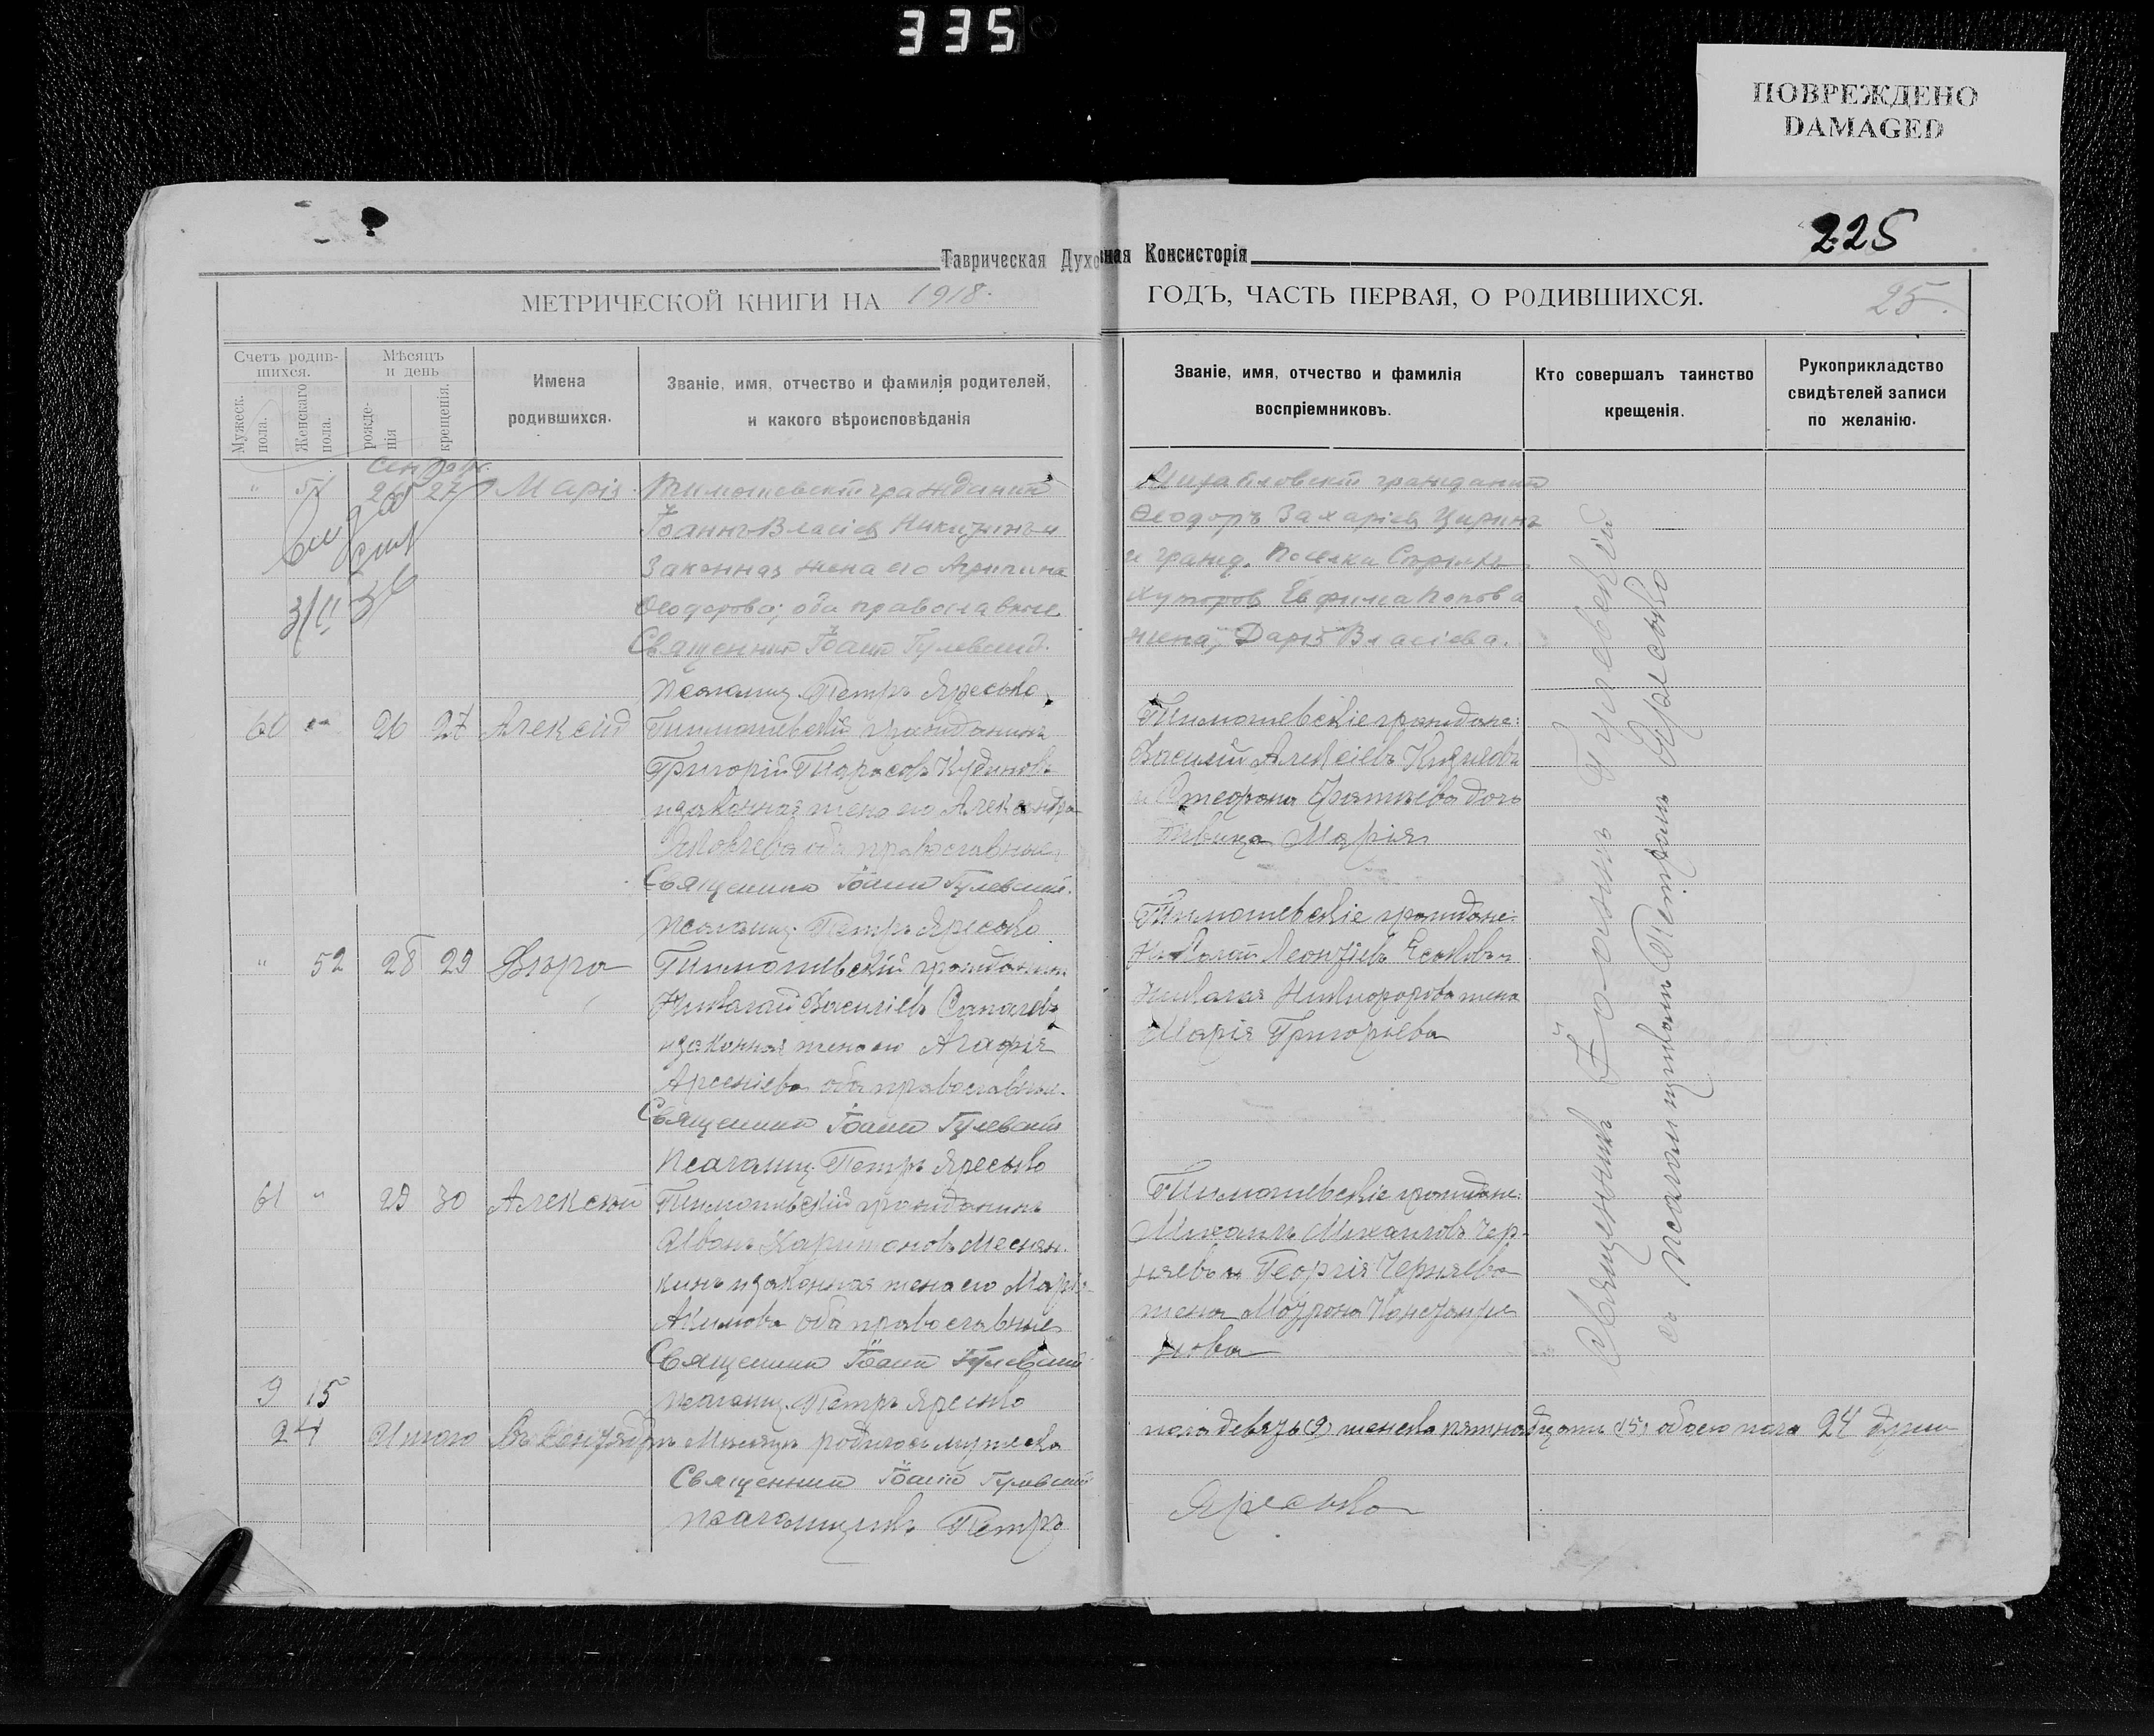 335
ПОВРЕЖДЕНО
DAMAGED
225
Таврическая Духовная Консисторія
МЕТРИЧЕСКОЙ КНИГИ НА 1918. ГОДЪ, ЧАСТЬ ПЕРВАЯ, О РОДИВШИХСЯ.
25.
Счетъ родив-
шихся.
Мужеск.
пола.
Женскаго
пола.
Мѣсяцъ
и день
рожде-
нія
крещенія.
Имена
родившихся.
Званіе, имя, отчество и фамилія родителей,
и какого вѣроисповѣданія
Званіе, имя, отчество и фамилія
воспріемниковъ.
Кто совершалъ таинство
крещенія.
Рукоприкладство
свидѣтелей записи
по желанію.
" 51 26 27 Марія
Тимошевскій гражданинъ
Іоаннъ Власіев и
Законная жена его
Ѳеодорова; оба православные
Священникъ Іоаннъ Гулевскій.
Псаломщ. Петръ Яресько
Михайловскій гражданинъ
Ѳеодоръ Захаріев
и гражд. поселка
хуторов Евфима Попова
жена, Дарія Власіева.
60 " 26 27 Алексій
Тимошевскій гражданинъ
Григорій Тарасовъ Кудиновъ
и законная жена его Александра
Яковлева оба православные
Священникъ Іоаннъ Гулевскій.
Псаломщ. Петръ Яресько
Тимошевскіе граждане:
Василій Алексіевъ
и Стефана дочь
дѣвица Марія
" 52 28 29 Вѣра
Тимошевскій гражданинъ
Николай Василіевъ
и законная жена его Агафія
Арсеніева оба православные.
Священникъ Іоаннъ Гулевскій
Псаломщ. Петръ Яресько
Тимошевскіе граждане:
Николай Леонтіевъ
Николая Никифорова жена
Марія Григорьева
61 " 29 30 Алексій
Тимошевскій гражданинъ
Иванъ Харитоновъ Меснян-
кинъ и законная жена его Марія
Акимова оба православные
Священникъ Іоаннъ Гулевскій
Псаломщ. Петръ Яресько
Тимошевскіе граждане:
Михаилъ Михаиловъ Чер-
няев и Георгія Черняева
жена Матрона Константи
нова
Священникъ Іоаннъ Гулевскій
съ псаломщикомъ Петромъ Яресько
9 15
24 Итого Въ Сентябрѣ мѣсяцѣ родилось мужеска пола девять (9) женска пятнадцать (15) обоего пола 24 души
Священникъ Іоаннъ Гулевскій
Псаломщикъ Петръ Яресько